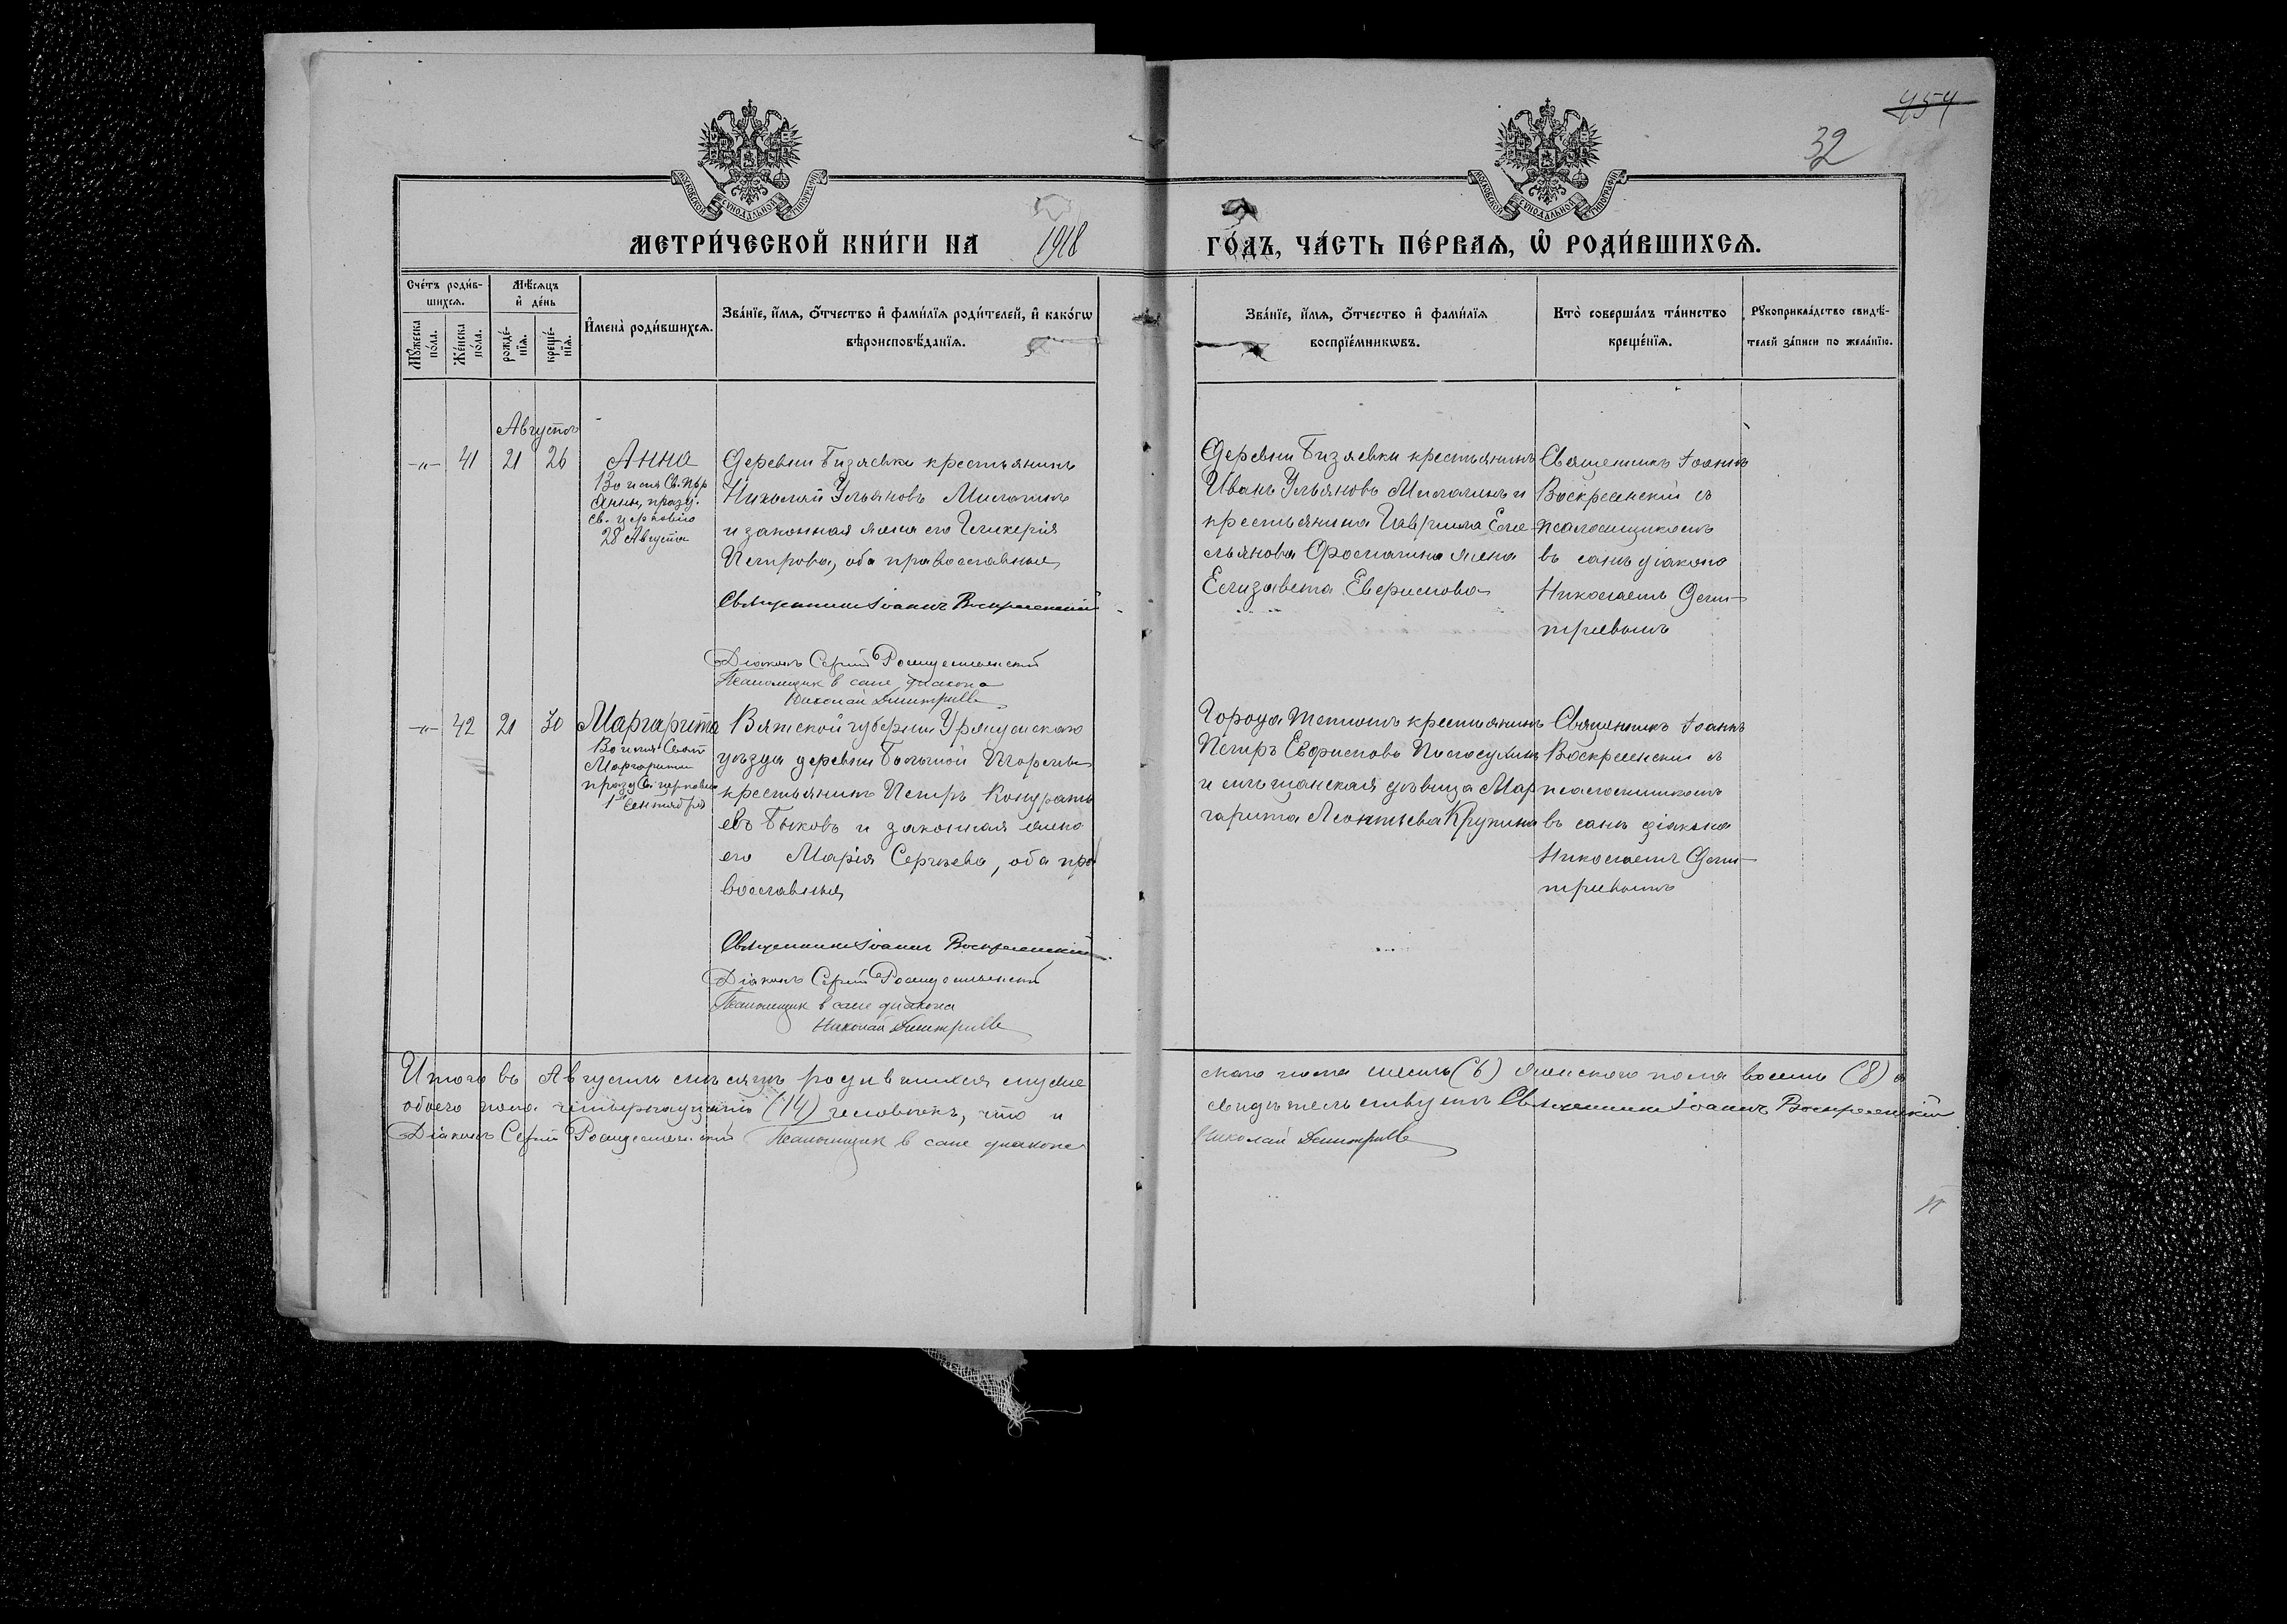 454
32
МОСКОВСКОЙ СѴНОДАЛЬНОЙ ТИПОГРАФІИ
МОСКОВСКОЙ СѴНОДАЛЬНОЙ ТИПОГРАФІИ
МЕТРИ́ЧЕСКОЙ КНИ́ГИ НА 1918 ГО́ДЪ, ЧА́СТЬ ПЕ́РВАѦ, Ѡ҆ РОДИ́ВШИХСѦ.
Сче́тъ роди́в-
шихсѧ.
Мѣ́сѧцъ
и҆ де́нь
Мꙋ́жеска
по́ла.
Же́нска
по́ла.
рожде́-
нїѧ.
креще́-
нїѧ.
И҆мена̀ роди́вшихсѧ.
Зва́нїе, и҆́мѧ, ѻ҆́тчество и҆ фами́лїѧ роди́телей, и҆ како́гѡ
вѣроисповѣ́данїѧ.
Зва́нїе, и҆́мѧ, ѻ҆́тчество и҆ фами́лїѧ
воспрїе́мникѡвъ.
Кто̀ соверша́лъ та́инство
креще́нїѧ.
Рꙋкоприкла́дство свидѣ́-
телей за́писи по жела́нїю.
Августъ
-"- 41 21 26
Анна
Во имя Св. Прр
Анны, празд.
св. церковію
28 Августа
Деревни Бизяевки крестьянинъ
Николай Ульяновъ Милатинъ
и законная жена его Гликерія
Петрова, оба православные
Священникъ Іоаннъ Воскресенскій
Діаконъ Сергій Рождественскій
Псаломщик в сане диакона
Николай Димитриевъ
Деревни Бизяевки крестьянинъ
Иванъ Ульяновъ Милатинъ и
крестьянина Гавріила Еме-
льянова жена
Елизавета
Священникъ Іоаннъ
Воскресенскій съ
псаломщикомъ
въ санѣ діакона
Николаемъ Дими-
тріевымъ
-"- 42 21 30
Маргарита
Во имя Свят
Маргариты
празд Св. церковію
1го Сентября
Вятской губерніи Уржумскаго
уѣзда деревни Большой
крестьянинъ Петръ Кондрать
евъ Быковъ и законная жена
его Марія Сергѣева, оба пра
вославные
Священникъ Іоаннъ Воскресенскій
Діаконъ Сергій Рождественскій
Псаломщик в сане диакона
Николай Димитриевъ
Города крестьянинъ
Петръ
и мѣщанская дѣвица Мар
гарита Леонтьева Крупина
Священникъ Іоаннъ
Воскресенскій съ
псаломщикомъ
въ санѣ діакона
Николаемъ Дими-
тріевымъ
Итого въ Августѣ мѣсяцѣ родившихся муже
скаго пола шесть (6) женскаго пола восемь (8) а
обоего пола четырнадцать (14) человѣкъ, что и
свидѣтельствуетъ Священникъ Іоаннъ Воскресенскій
Діаконъ Сергій Рождественскій Псаломщик в сане диакона
Николай Димитриевъ